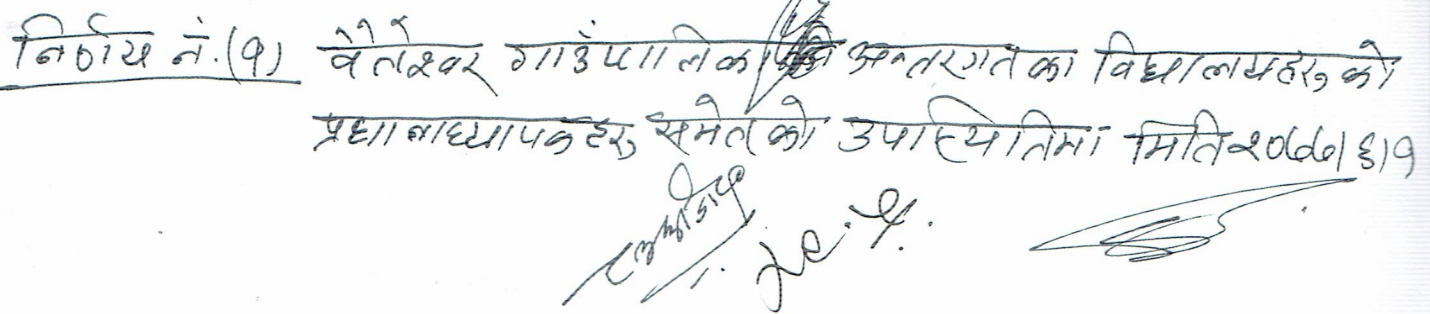 निर्णय नं. (१) वैतेश्वर गाउँपालिका अन्तरगतका विद्यालयहरुको
प्रधानाध्यापकहरु समेतको उपास्थितिमा मिति २०७७।६।१